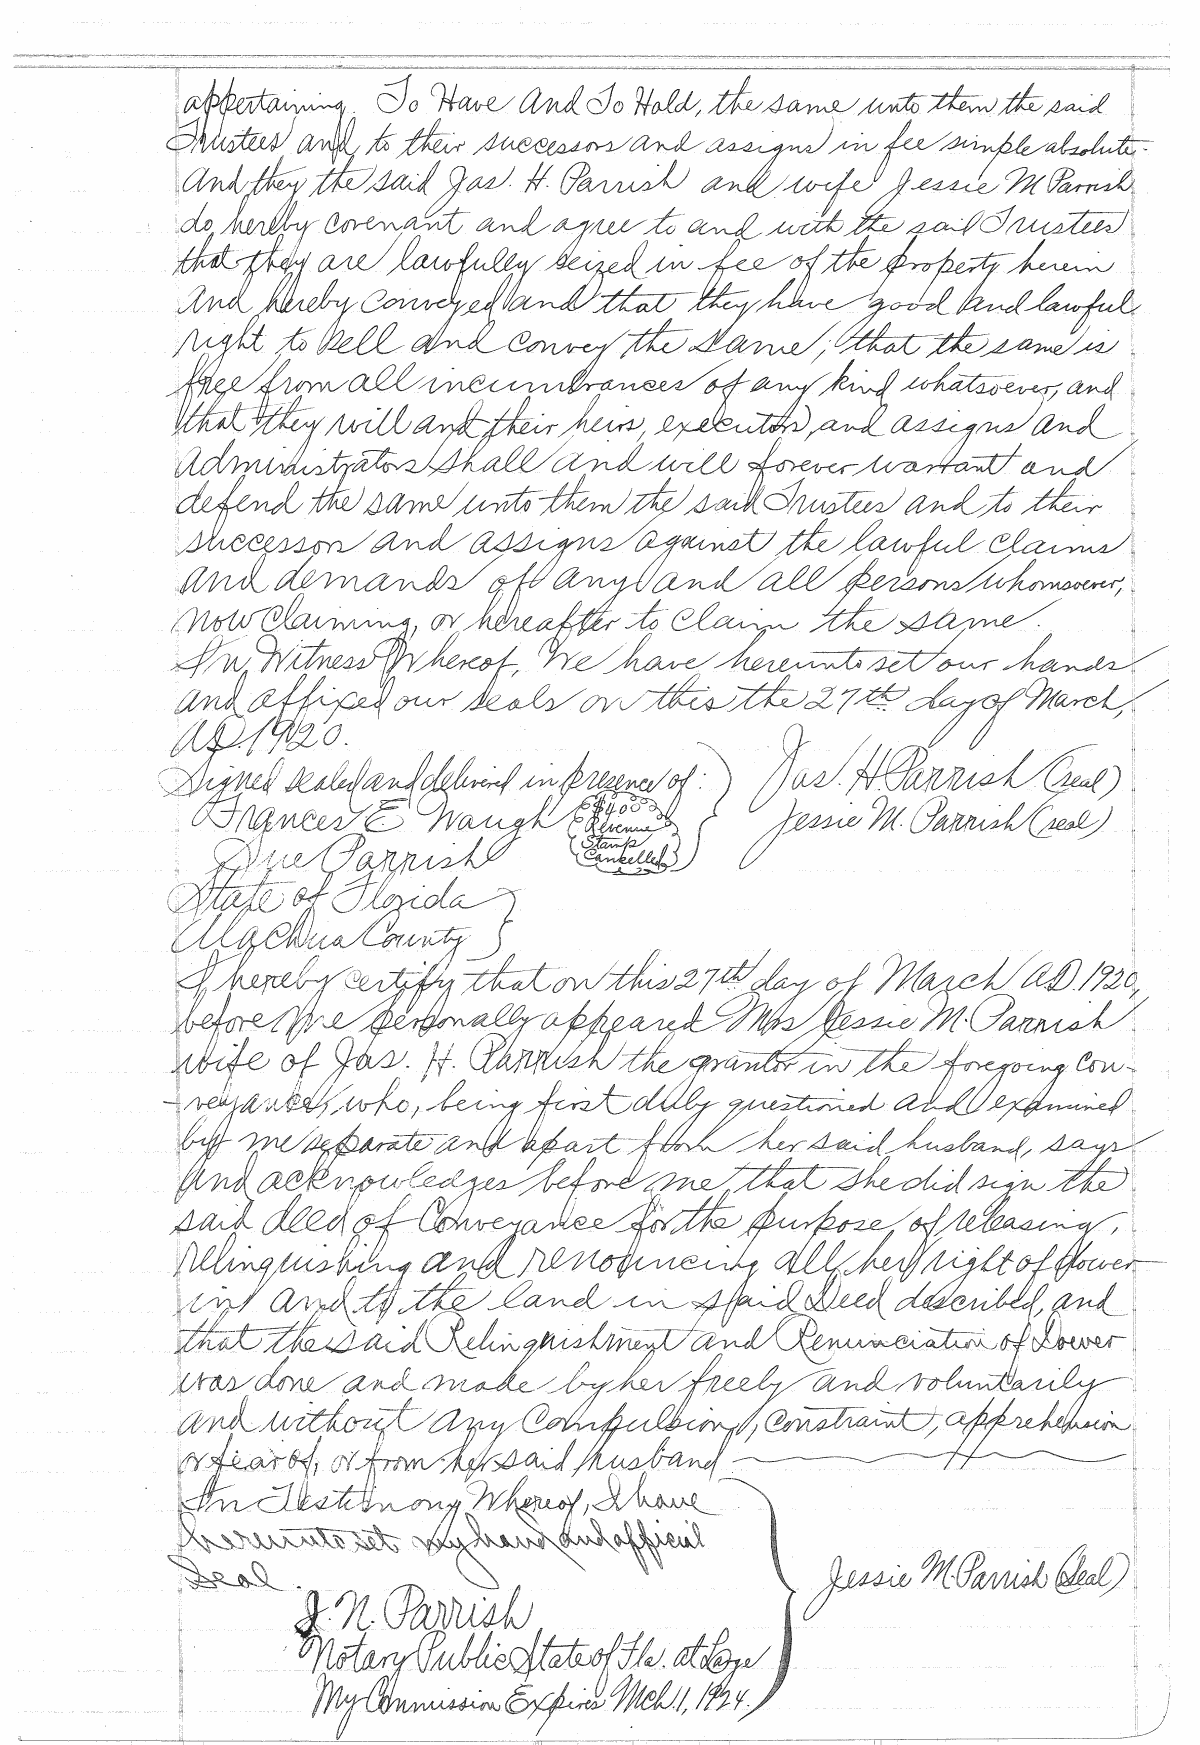 appertaining. To Have And To Hold, the same unto them the said
Trustees and to their successors and assigns in fee simple absolute.
And they the said Jas. H. Parrish and wife Jessie M Parrish
do hereby covenant and agree to and with the said Trustees
that they are lawfully seized in fee of the property herein
and hereby conveyed and that they have good and lawful
right to sell and convey the same; that the same is
free from all incumbrances of any kind whatsoever, and
that they will and their heirs, executors, and assigns and
administrators shall and will forever warrant and
defend the same unto them the said Trustees and to their
successors and assigns against the lawful claims
and demands of any and all persons whomsoever,
now claiming, or hereafter to claim the same.
In Witness Whereof, We have hereunto set our hands
and affixed our seals on this the 27th day of March,
A.D. 1920.
Signed sealed and delivered in presence of: Jas. H Parrish (seal)
Frances E Waugh Jessie M. Parrish (seal)
Sue Parrish
$4.00
Revenue
Stamp
Cancelled
State of Florida
Alachua County
I hereby certify that on this 27th day of March A.D. 1920,
before me personally appeared Mrs Jessie M. Parrish
wife of Jas. H. Parrish the grantor in the foregoing con-
veyance, who, being first duly questioned and examined
by me separate and apart from her said husband, says
and acknowledges before me, that she did sign the
said deed of Conveyance for the purpose of releasing,
relinquishing and renouncing all her right of dower
in and to the land in said Deed described, and
that the said Relinquishment and Renunciation of Dower
was done and made by her freely and voluntarily
and without any compulsion, constraint, apprehension
or fear of, or from her said husband
In Testimony Whereof, I have
hereunto set my hand and official
Seal. Jessie M. Parrish (Seal)
J. N. Parrish
Notary Public State of Fla. at Large
My Commission Expires Mch. 1, 1924.